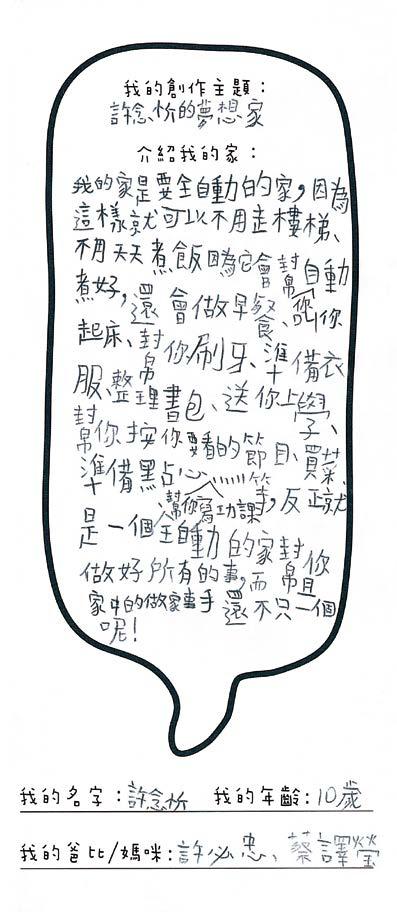 我的創作主題：
許念忻的夢想家
介紹我的家：
我的家是要全自動的家，因為
這樣就可以不用走樓梯、
不用天天煮飯因為它會幫自動
煮好，還會做早餐、叫你
起床、幫你刷牙、準備衣
服、整理書包、送你上學、
幫你按你要看的節目、買菜、
準備點心……等，反正就
幫你寫功課
是一個全自動的家幫你
做好所有的事，而且
家中的做家事手還不只一個
呢！
我的名字：許念忻 我的年齡：10歲
我的爸比/媽咪：許必忠、蔡譯瑩